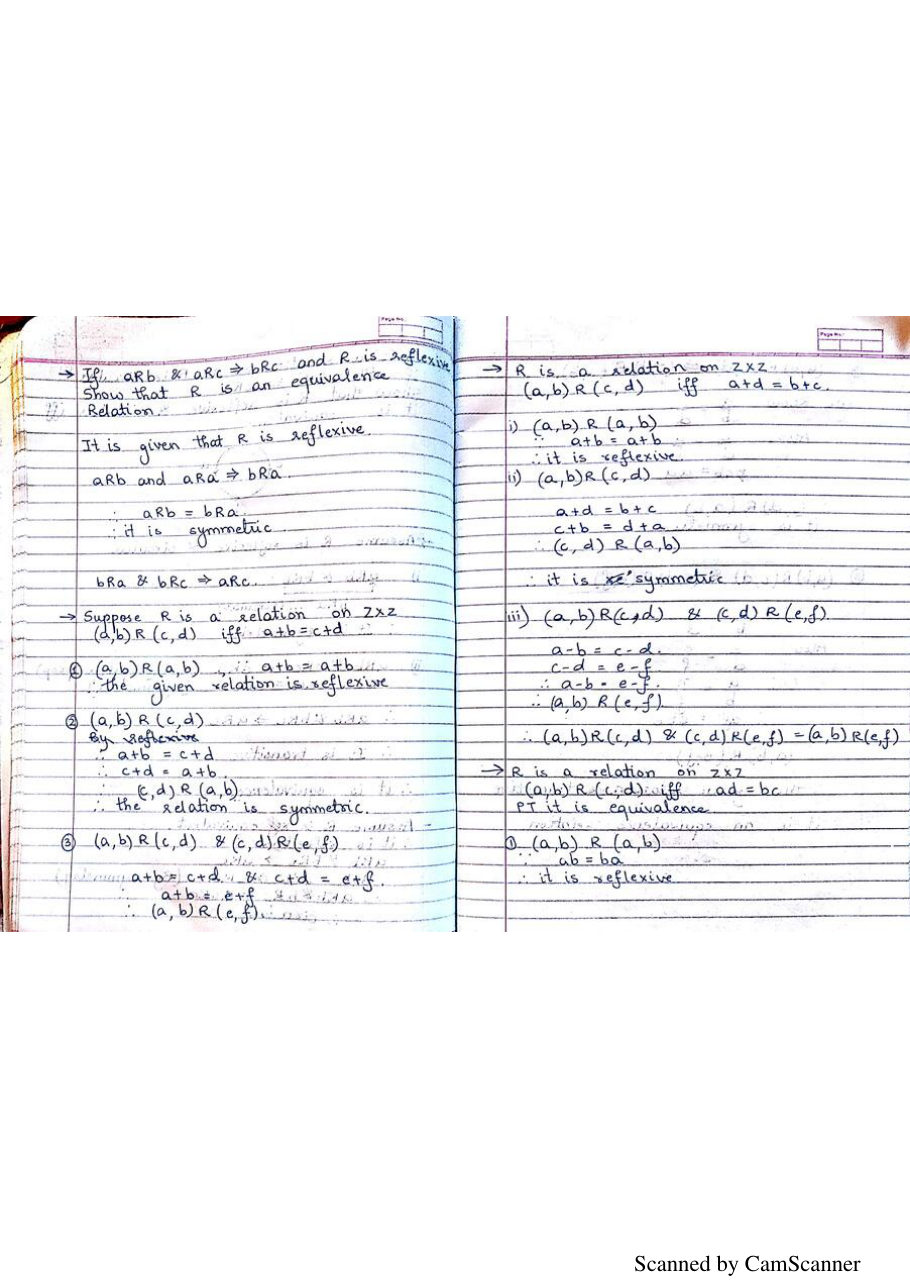 Page No.
→ If aRb & aRc ⇒ bRc and R is reflexive
Show that R is an equivalence
Relation.
It is given that R is reflexive.
aRb and aRa ⇒ bRa.
∴ aRb = bRa
∴ it is symmetric
bRa & bRc ⇒ aRc.
→ Suppose R is a relation on Z×Z
(a,b) R (c,d) iff a+b = c+d
① (a,b) R (a,b) ∵ a+b = a+b
∴ the given relation is reflexive
② (a,b) R (c,d)
By reflexive
∵ a+b = c+d
∴ c+d = a+b
∴ (c,d) R (a,b)
∴ the relation is symmetric.
③ (a,b) R (c,d) & (c,d) R (e,f)
a+b = c+d & c+d = e+f.
∴ a+b = e+f
∴ (a,b) R (e,f).
Page No.
→ R is a relation on Z×Z
(a,b) R (c,d) iff a+d = b+c.
i) (a,b) R (a,b)
∵ a+b = a+b
∴ it is reflexive.
ii) (a,b) R (c,d)
a+d = b+c
c+b = d+a
∴ (c,d) R (a,b)
∴ it is symmetric
iii) (a,b) R (c,d) & (c,d) R (e,f)
a-b = c-d.
c-d = e-f
∴ a-b = e-f.
∴ (a,b) R (e,f)
∴ (a,b) R (c,d) & (c,d) R (e,f) = (a,b) R (e,f)
→ R is a relation on Z×Z
(a,b) R (c,d) iff ad = bc
PT it is equivalence
①. (a,b) R (a,b)
∵ ab = ba
∴ it is reflexive
Scanned by CamScanner